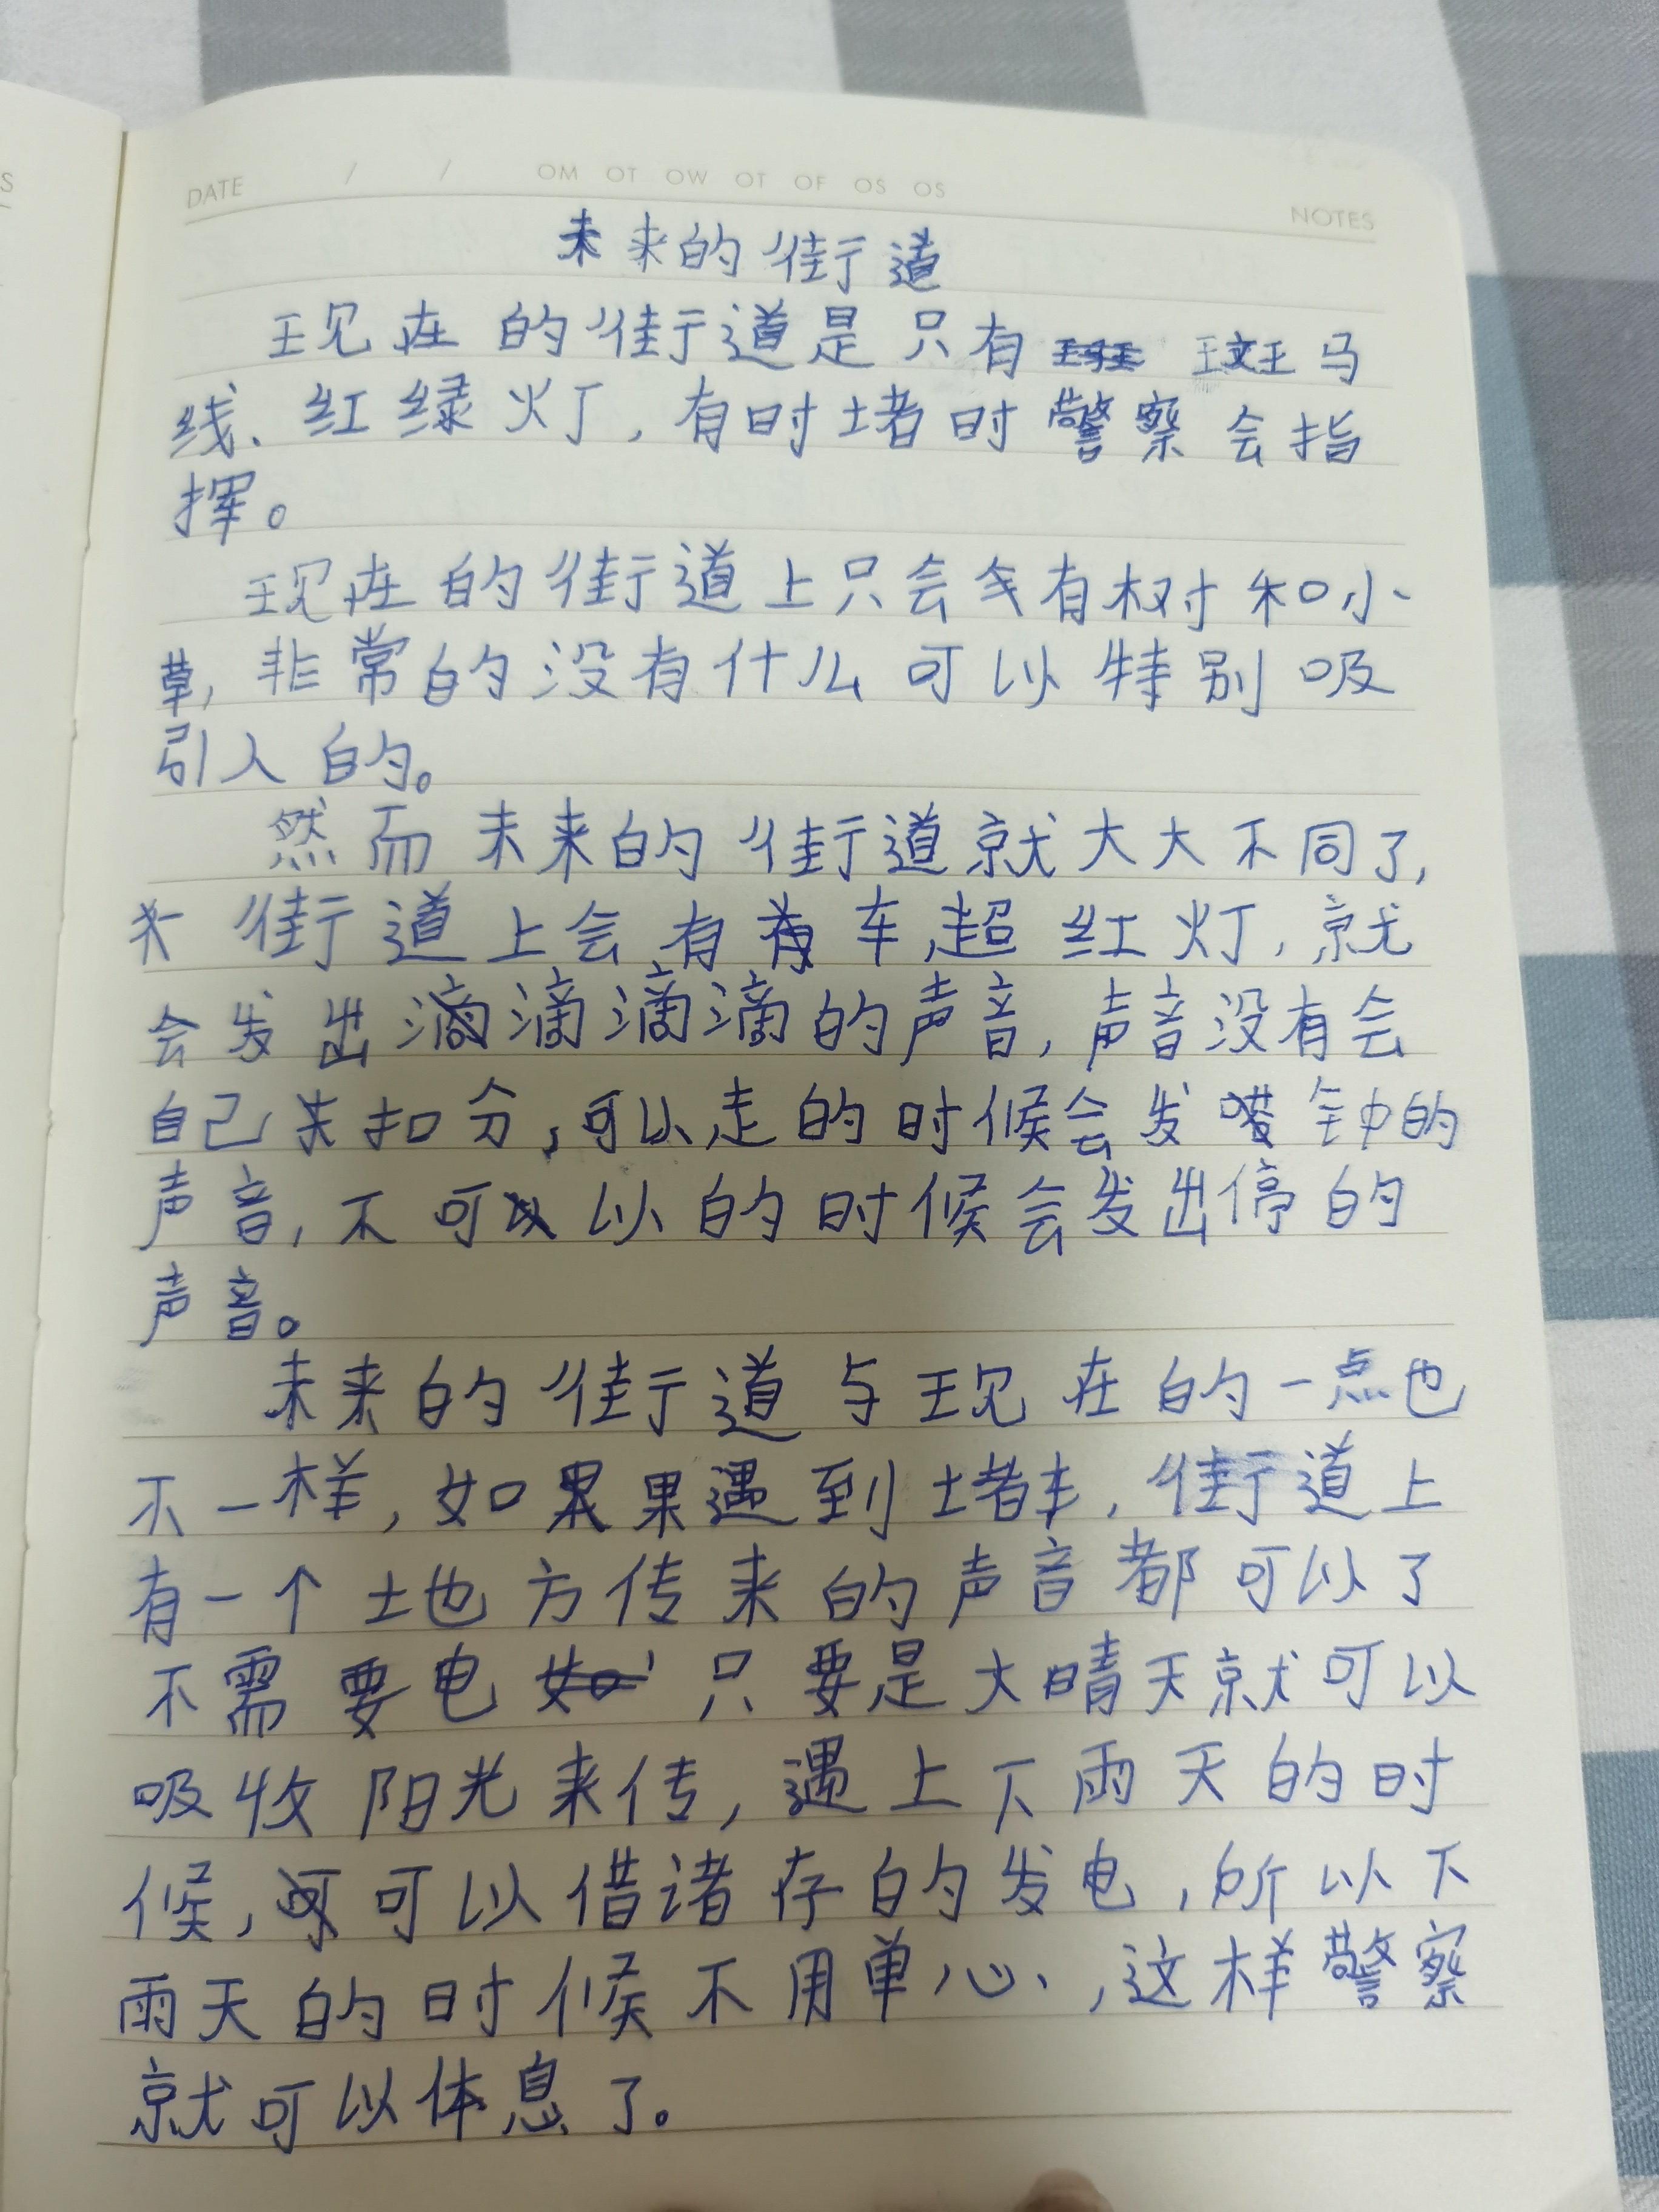 DATE / / OM OT OW OT OF OS OS
NOTES
未来的街道
现在的街道是只有斑马
线、红绿灯,有时堵时警察会指
挥。
现在的街道上只会有树和小
草,非常的没有什么可以特别吸
引人的。
然而未来的街道就大大不同了,
街道上会有车超红灯,就
会发出滴滴滴滴的声音,声音没有会
自己扣分,可以走的时候会发噔钟的
声音,不可以的时候会发出停的
声音。
未来的街道与现在的一点也
不一样,如果遇到堵车,街道上
有一个地方传来的声音都可以了
不需要电只要是大晴天就可以
吸收阳光来传,遇上下雨天的时
候,可以借诸存的发电,所以下
雨天的时候不用单心,这样警察
就可以体息了。